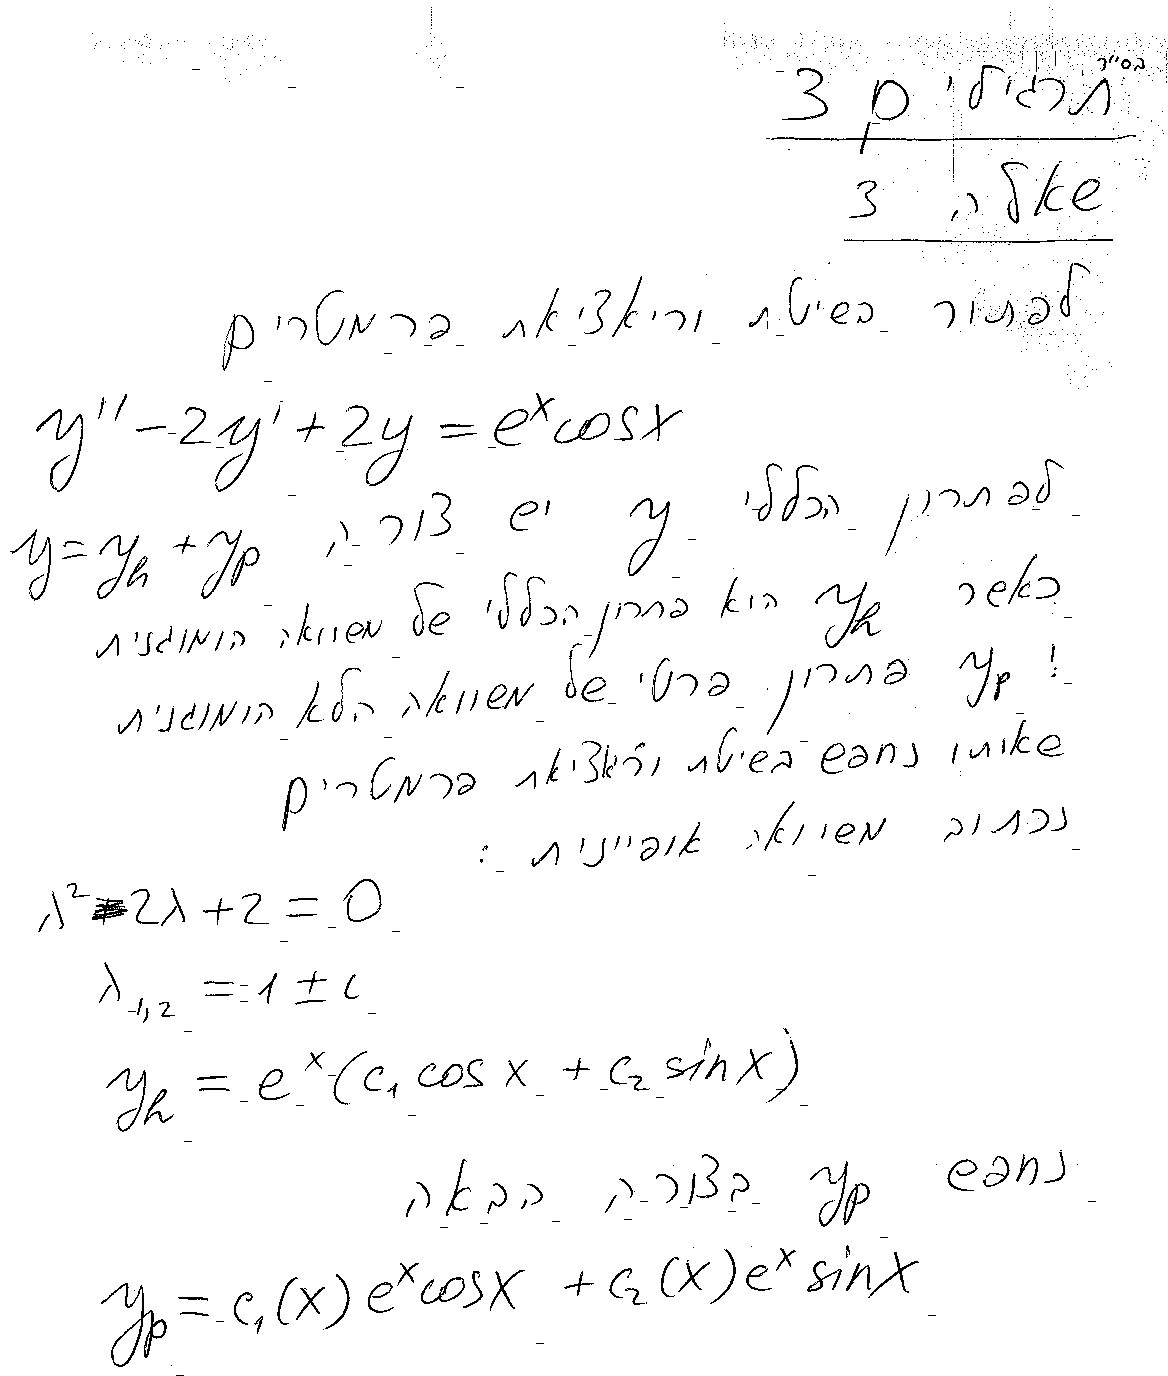 בס״ד
תרגילים 3
שאלה 3
לפתור בשיטת וריאציאת פרמטרים
y'' - 2y' + 2y = e^x cos x
לפתרון הכללי y יש צורה y = y_h + y_p
כאשר y_h הוא פתרון הכללי של משוואה הומוגנית
ו y_p פתרון פרטי של משוואה הלא הומוגנית
שאותו נחפש בשיטת וריאציאת פרמטרים
נכתוב משוואה אופיינית :
λ² - 2λ + 2 = 0
λ_{1,2} = 1 ± i
y_h = e^x (c_1 cos x + c_2 sin x)
נחפש y_p בצורה הבאה
y_p = c_1(x) e^x cos x + c_2(x) e^x sin x